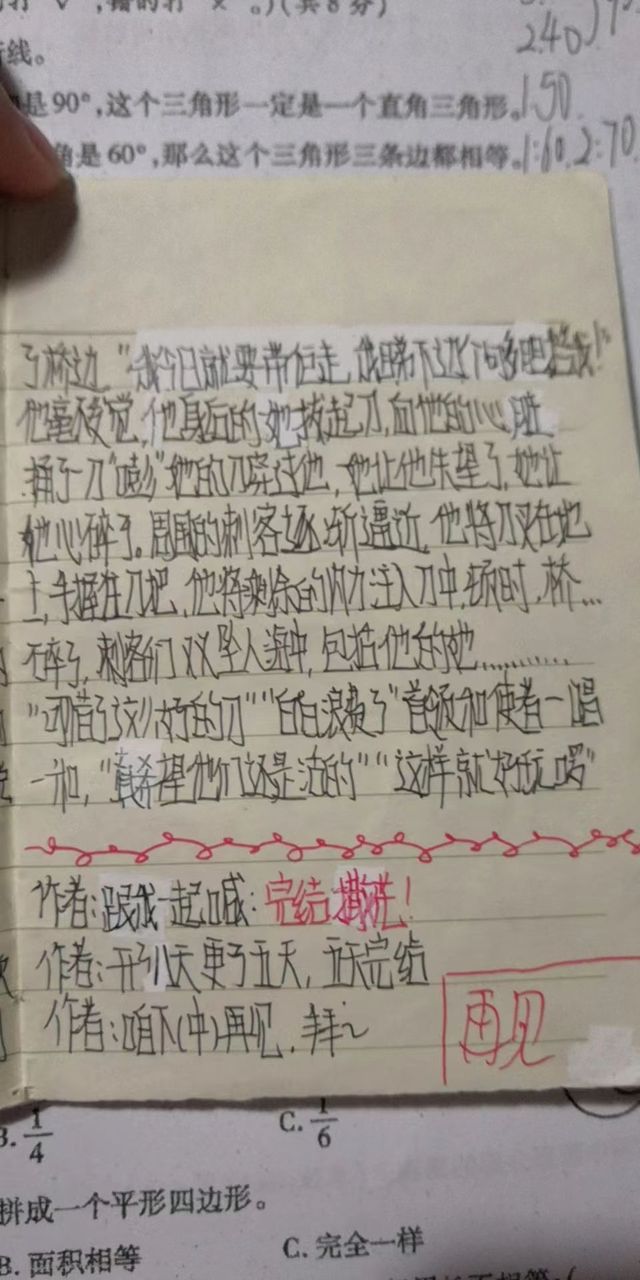 线。
是90°,这个三角形一定是一个直角三角形。150
角是60°,那么这个三角形三条边都相等。1:60.2:70
240
了桥边"我今日就要带他走,我瞧不边个够胆挡我!"
他毫不发觉,他身后的她拔起刀,向他的心脏
捅了一刀"嘭"她的刀穿过他,她让他失望了,她让
他心碎了。周围的刺客逐渐逼近,他将刀叉在地
上,手握住刀把,他将剩余的内力注入刀中,顿时,桥...
碎了,刺客们双双坠入湖中,包括他的她............
"可惜了这么好的刀""白白浪费了"首领和使者一唱
一和,"真希望他们还是活的""这样就'好玩'啰"
作者:跟我一起喊:完结撒花!
作者:开了八天更了五天,五天完结
作者:咱下(中)再见,拜~
再见
B. 1/4
C. 1/6
拼成一个平形四边形。
B. 面积相等
C. 完全一样